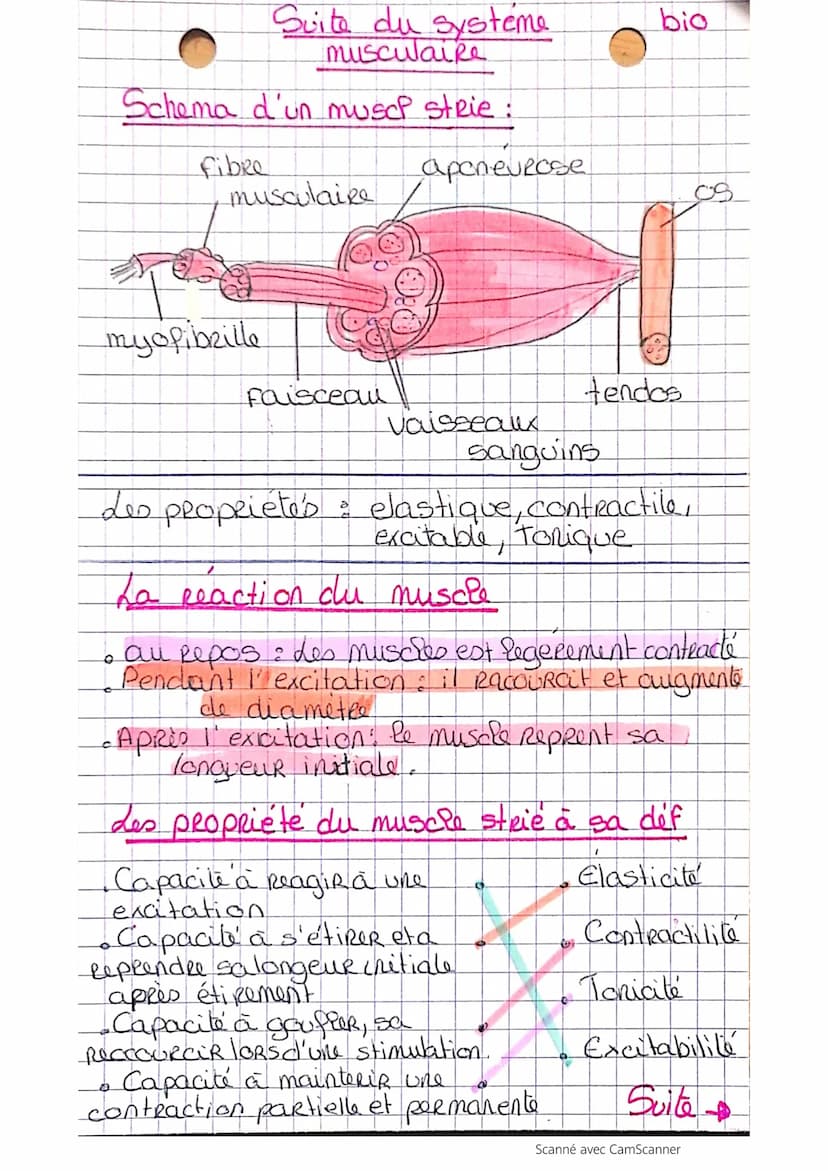 Suite du système
bio
musculaire
Schema d'un muscl strie :
fibre
musculaire
aponévrose
os
myofibrille
faisceau
tendos
vaisseaux
sanguins
Les propriétés : elastique, contractile,
excitable, Tonique
La réaction du muscle
• au repos : les muscles est legérement contracté
• Pendant l'excitation : il racourcit et augmente
de diamétre
• Après l'excitation : le muscle reprent sa
longueur initiale.
Les propriété du muscle strié à sa déf
• Capacité à reagir à une
excitation
• Capacité à s'étirer et a
reprendre sa longeur initiale
après étirement
• Capacité à gonfler, sa
reccourcir lors d'une stimulation.
• Capacité à maintenir une
contraction partielle et permanente
Élasticité
Contractilité
Tonicité
Excitabilité
Suite →
Scanné avec CamScanner